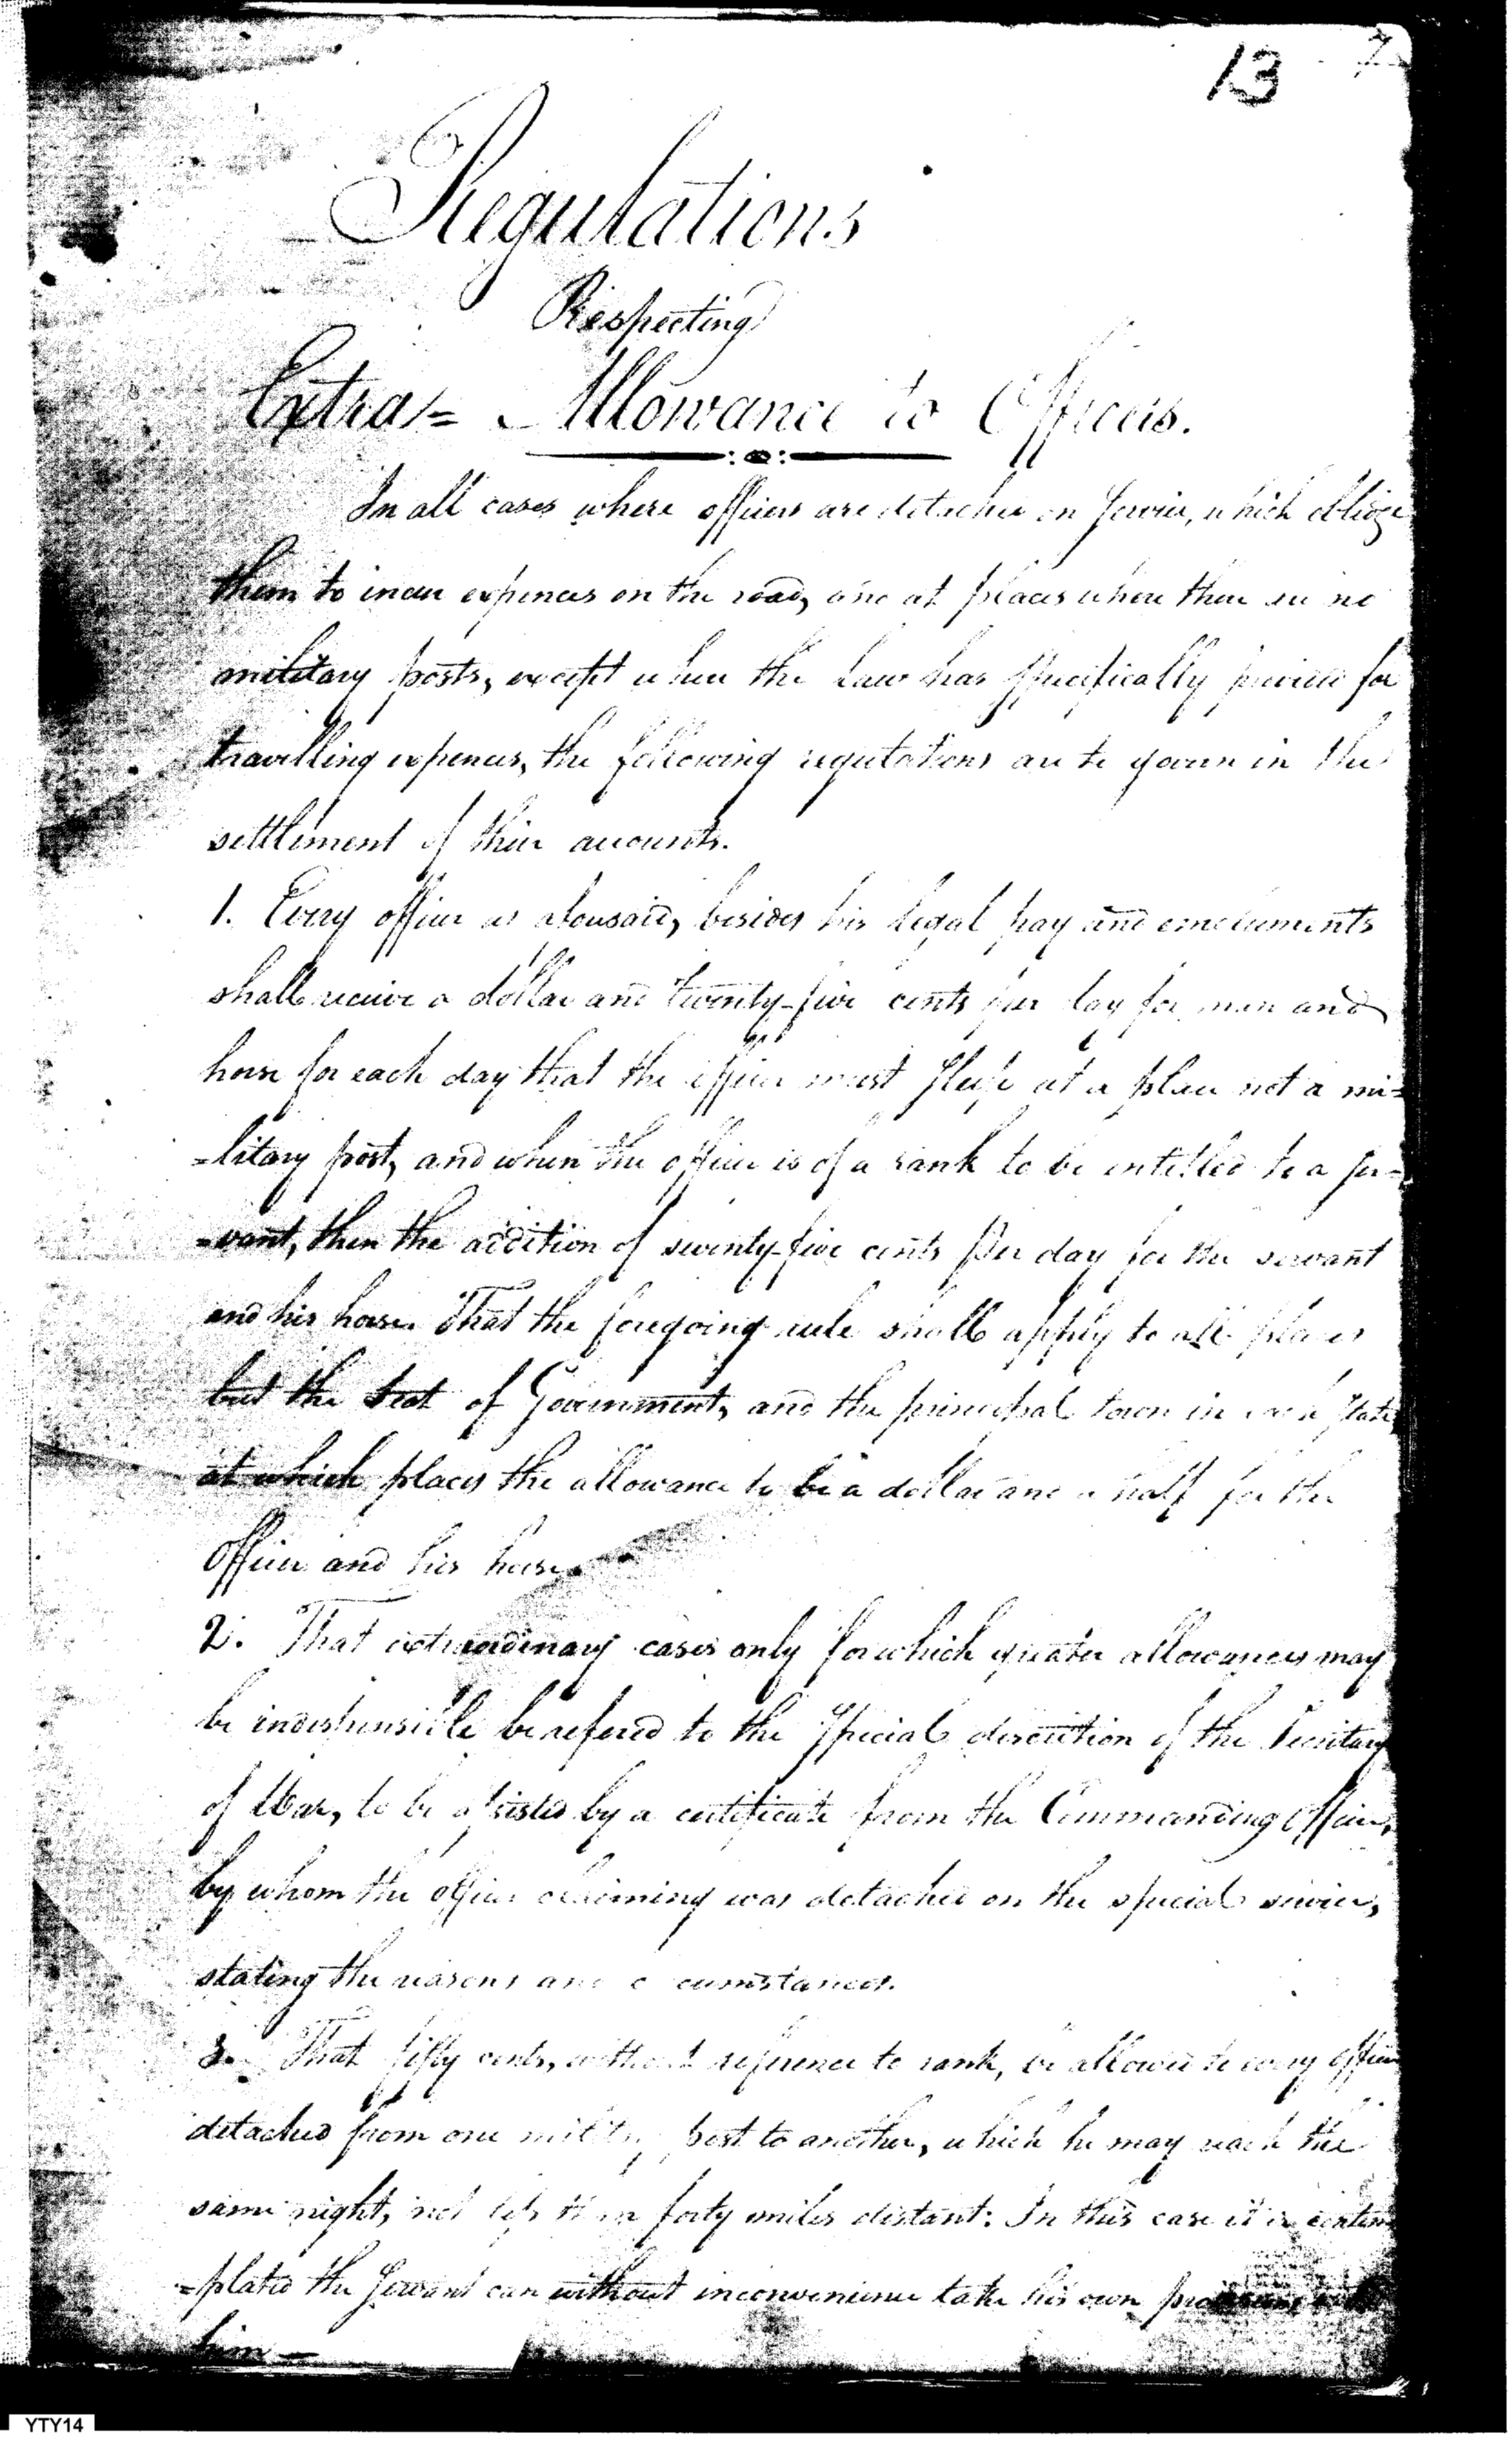 13 7
Regulations
Respecting
Extra= Allowance to Officers.
In all cases where officers are detached on service, which oblige
them to incur expences on the road, and at places where there are no
military posts, except when the Law has specifically provided for
travelling expences, the following regulations are to govern in the
settlement of their accounts.
1. Every officer as aforesaid, besides his legal pay and emoluments
shall receive a dollar and twenty-five cents per day for man and
horse for each day that the officer must sleep at a place not a mi=
=litary post, and when the officer is of a rank to be entitled to a ser=
=vant, then the addition of seventy-five cents per day for the servant
and his horse. That the foregoing rule shall apply to all places
but the Seat of Government, and the principal town in each State
at which places the allowance to be a dollar and a half for the
Officer and his horse.
2. That extraordinary cases only for which greater allowances may
be indispensible be refered to the special discretion of the Secretary
of War, to be assisted by a certificate from the Commanding Officer,
by whom the officer claiming was detached on the special service,
stating the reasons and circumstances.
3. That fifty cents, without reference to rank, be allowed to every officer
detached from one military post to another, which he may reach the
same night, not less than forty miles distant: In this case it is contem
=plated the servant can without inconvenience take his own provisions with
him —
YTY14